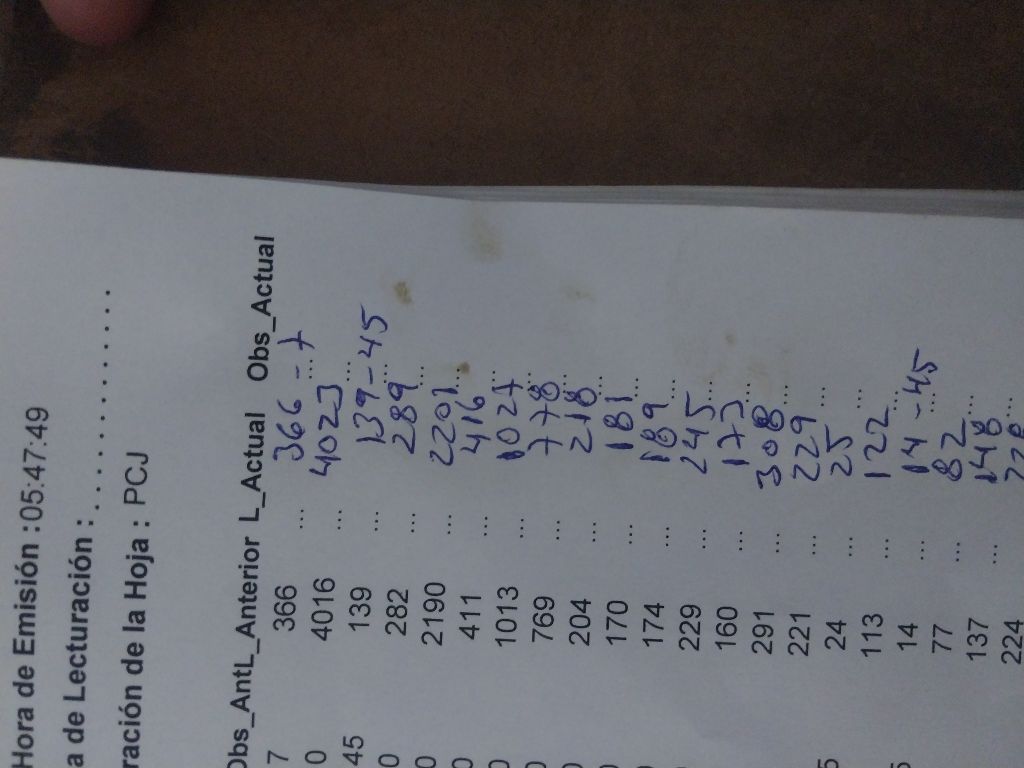 Hora de Emisión : 05:47:49
a de Lecturación : ..............
ración de la Hoja : PCJ
Obs_AntL_Anterior L_Actual Obs_Actual
7 366 ... 366 - 7 ...
0 4016 ... 4023 ...
45 139 ... 139 - 45 ...
0 282 ... 289 ...
0 2190 ... 2201 ...
0 411 ... 416 ...
0 1013 ... 1027 ...
0 769 ... 778 ...
0 204 ... 218 ...
170 ... 181 ...
174 ... 189 ...
229 ... 245 ...
160 ... 173 ...
291 ... 308 ...
221 ... 229 ...
5 24 ... 25 ...
113 ... 122 ...
5 14 ... 14 - 45 ...
77 ... 82 ...
137 ... 148 ...
224